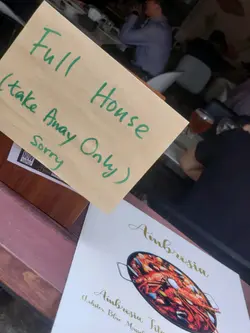 Full House
(take Away Only)
Sorry
Ambrosia
Ambrosia